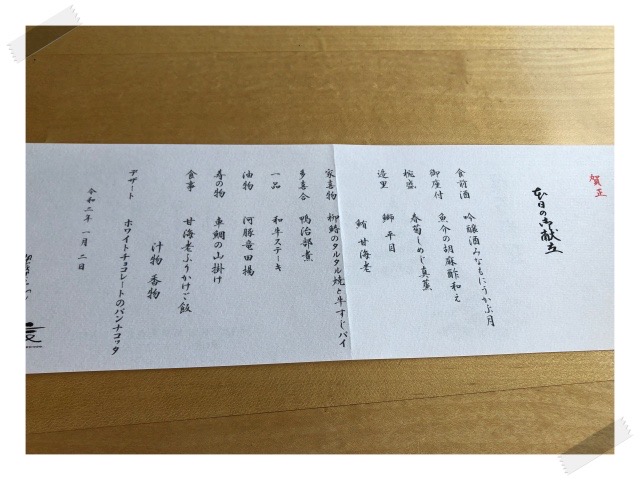 賀正
本日の御献立
食前酒 吟醸酒みなもにうかぶ月
御座付 魚介の胡麻酢和え
椀盛 春菊しめじ真蒸
造里 鰤 平目
鮪 甘海老
家喜物 柳鰆のタルタル焼と牛すじパイ
多喜合 鴨治部煮
一品 和牛ステーキ
油物 河豚竜田揚
寿の物 車鯛の山掛け
食事 甘海老ふりかけご飯
汁物 香物
デザート ホワイトチョコレートのパンナコッタ
令和二年 一月 二日